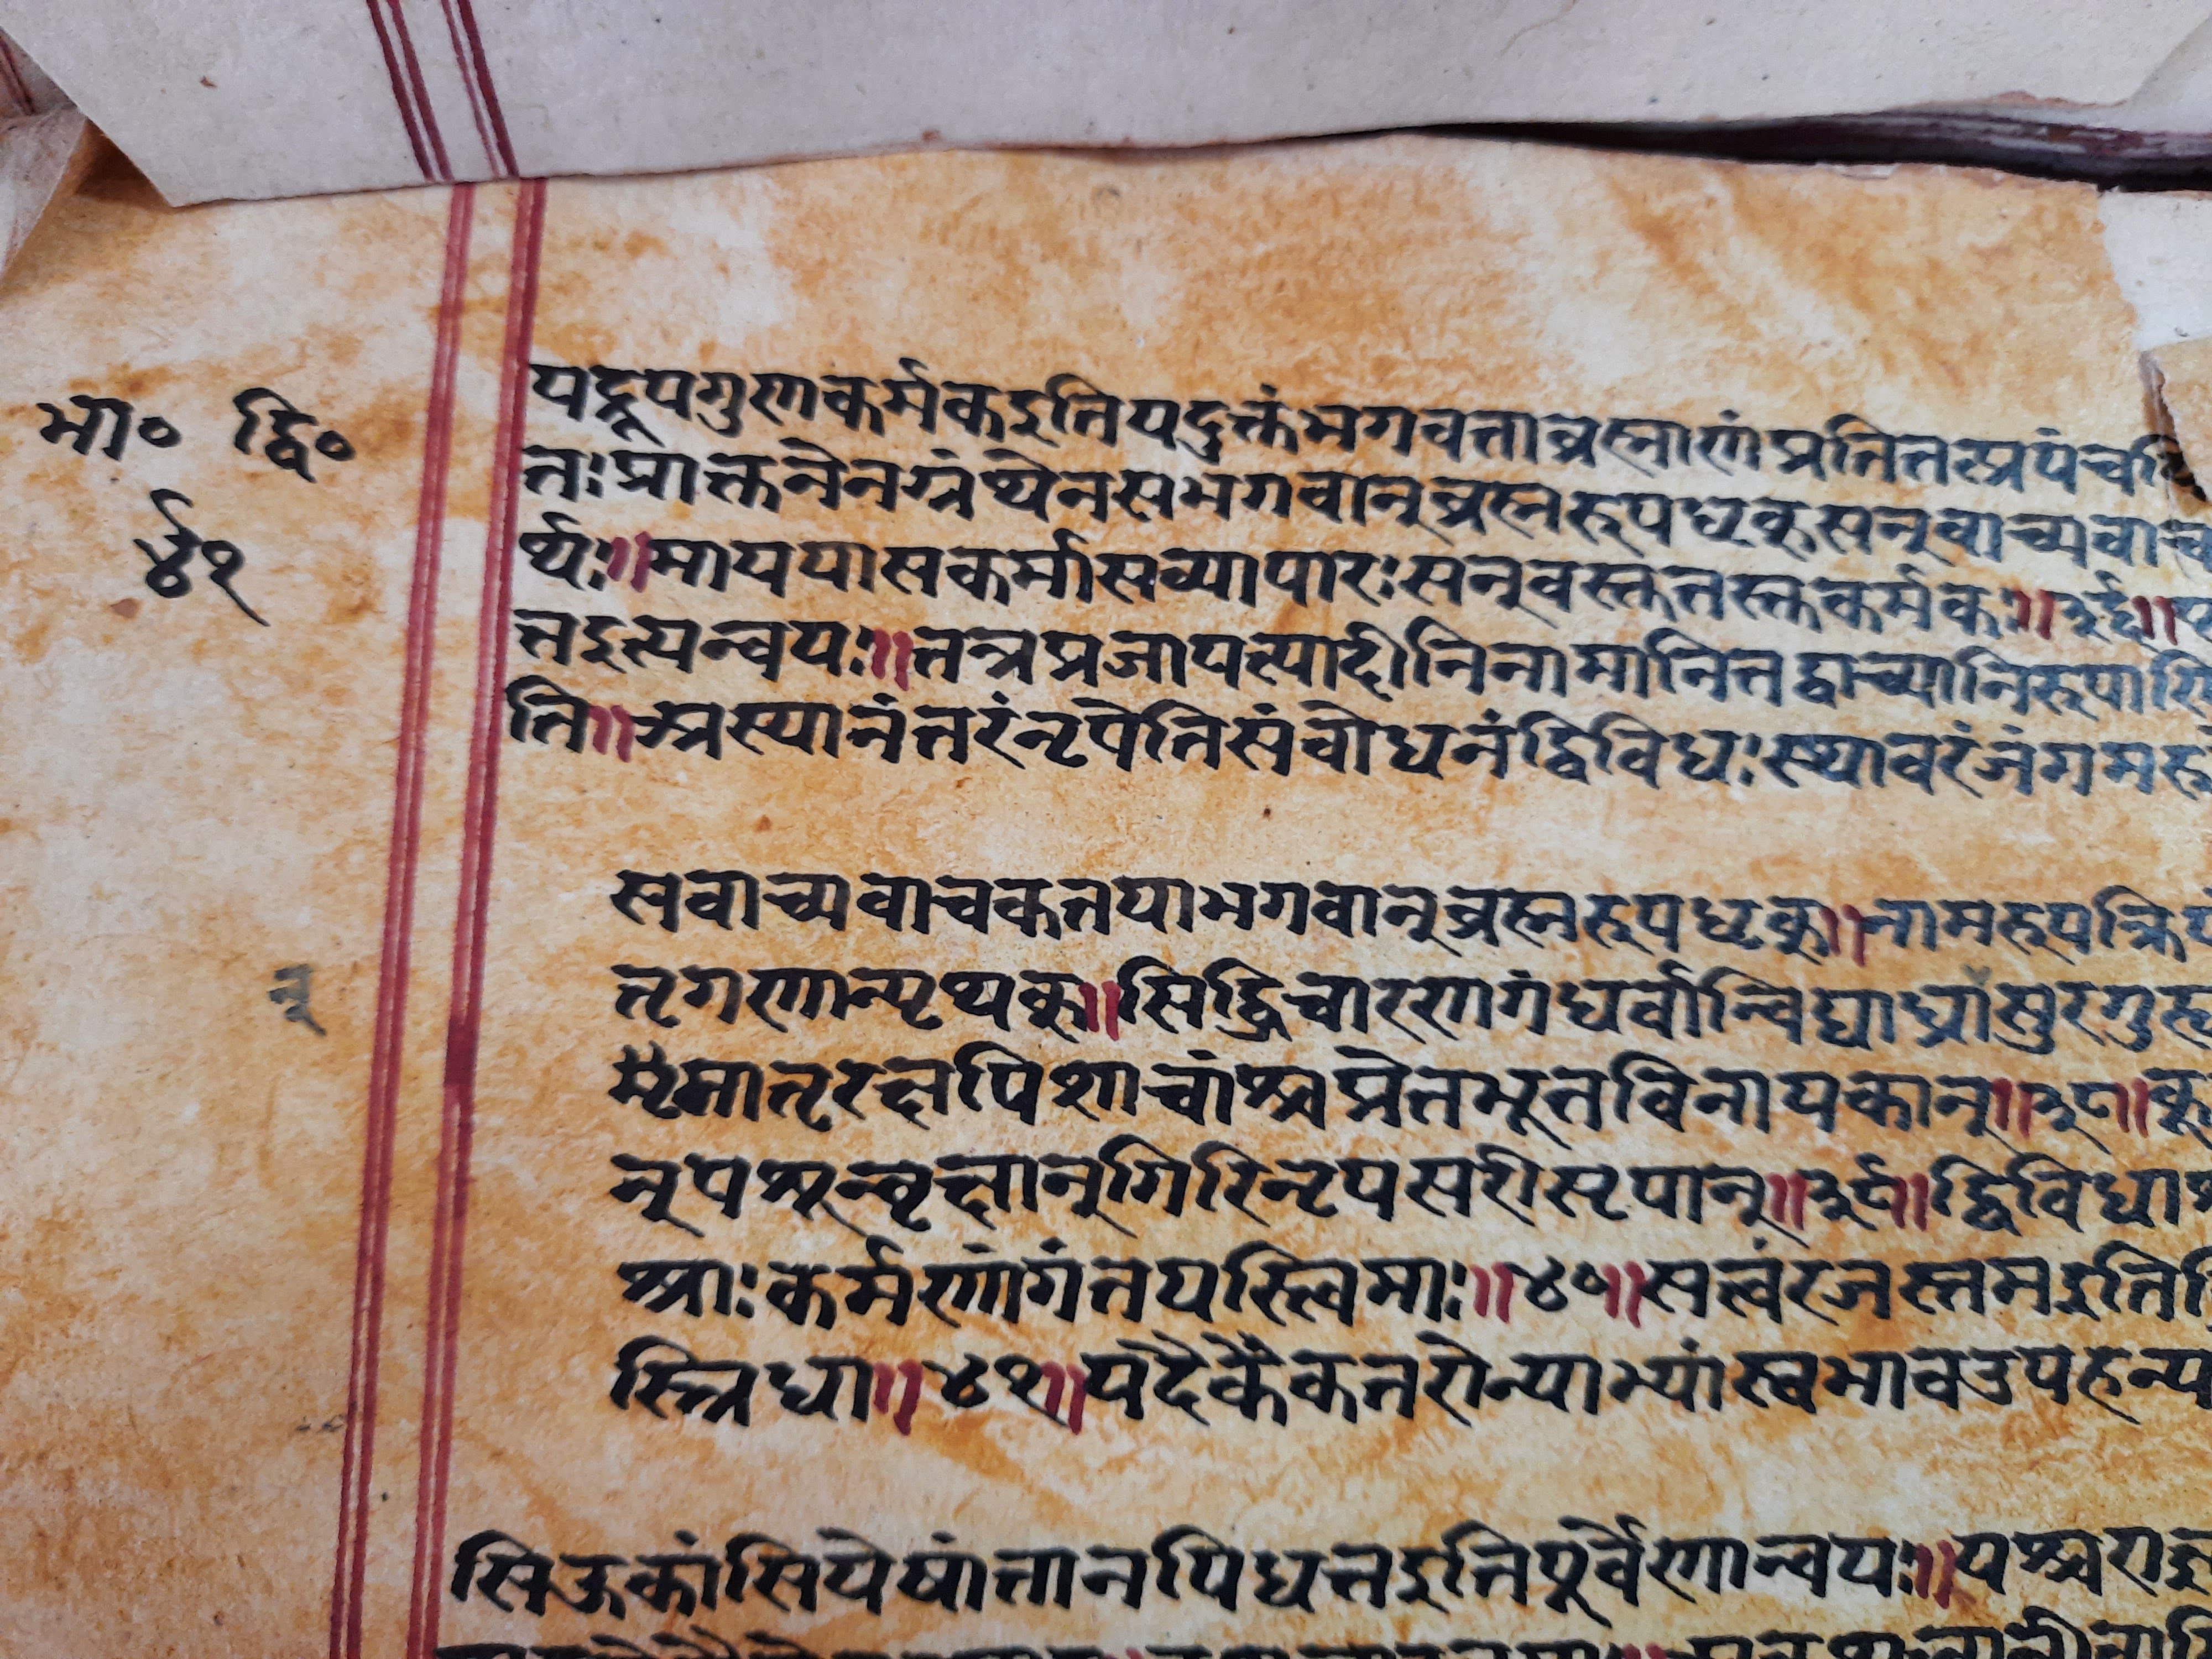 भा॰ द्वि॰
४१
यद्रूपगुणकर्मकइतियदुक्तंभगवताब्रह्माणंप्रतितत्प्रपंच
तःप्राक्तनेनग्रंथेनसभगवान्ब्रह्मरूपधृक्सन्वाच्यवाच
र्थः॥माययासकर्मासव्यापारःसन्वस्तुतस्त्वकर्मकः॥३६॥
त्तइत्यन्वयः॥तत्रप्रजापत्यादीनिनामानितद्वाच्यानिरूपाणि
ति॥अस्यानंतरंनृपेतिसंबोधनंद्विविधःस्थावरंजंगम
सवाच्यवाचकतयाभगवान्ब्रह्मरूपधृक्॥नामरूपक्रि
न्
तृगणान्पृथक्॥सिद्धिचारणगंधर्वान्विद्याध्रासुरगुह्य
मातृरक्षपिशाचांश्चप्रेतभूतविनायकान्॥३८॥कू
न्पशून्वृक्षान्गिरिन्नृपसरीसृपान्॥३९॥द्विविधाश्
श्राःकर्मणांगतयस्त्विमाः॥४०॥सत्वंरजस्तमइति
स्त्रिधा॥४१॥यदैकैकतरोन्याभ्यांस्वभावउपहन्य
सिऊकांसियेषांतानपिधत्तइतिपूर्वेणान्वयः॥